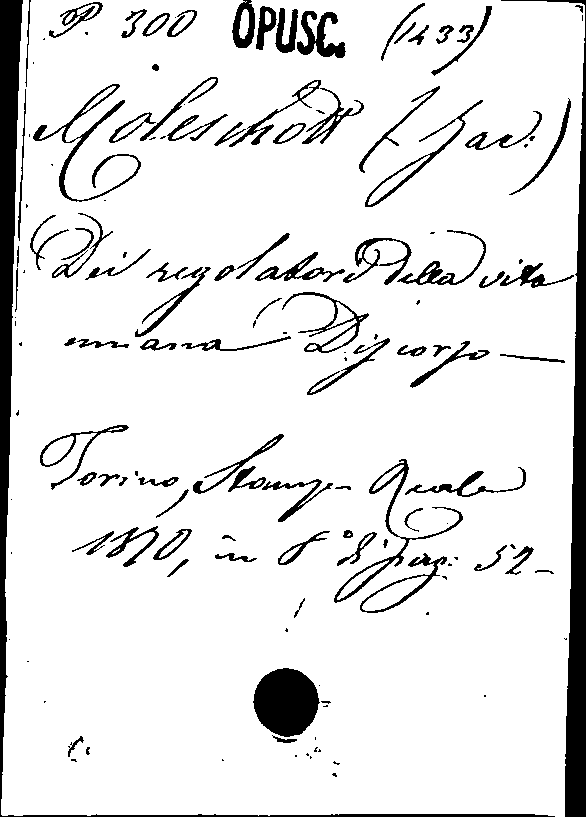 P. 300 OPUSC. (1433)
Moleschott (Jac:)
Dei regolatori della vita
umana Discorso —
Torino, Stamp. Reale
1870, in 8° di pag: 52-